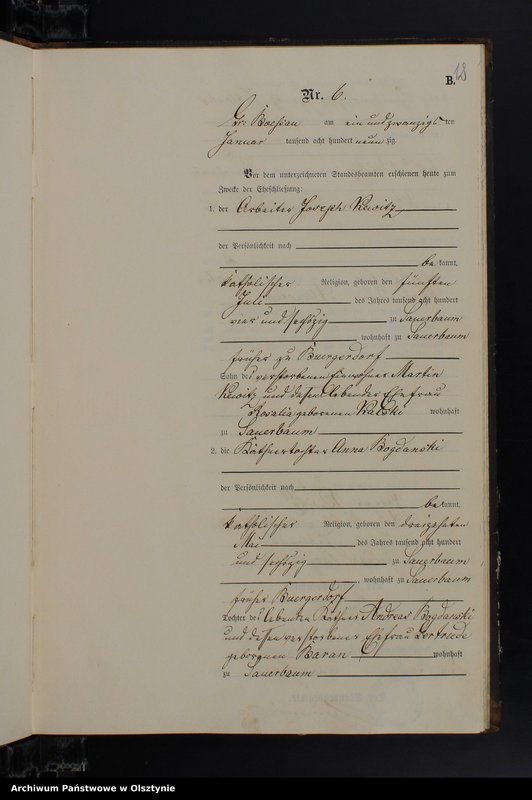 18
B.
Nr. 6.
Gr: Boessau am ein und zwanzigsten
Januar tausend acht hundert neunzig
Vor dem unterzeichneten Standesbeamten erschienen heute zum
Zwecke der Eheschließung:
1. der Arbeiter Joseph Kewitz
der Persönlichkeit nach
bekannt,
katholischer Religion, geboren den fünften
Juli des Jahres tausend acht hundert
vier und sechszig zu Sauerbaum
, wohnhaft zu Sauerbaum
früher zu Buergerdorf
Sohn des verstorbenen Einwohner Martin
Kewitz und dessen lebender Ehefrau
Rosalia geborenen Kalski wohnhaft
zu Sauerbaum
2. die Käthnertochter Anna Bogdanski
der Persönlichkeit nach
bekannt,
katholischer Religion, geboren den dreizehnten
Mai des Jahres tausend acht hundert
und sechszig zu Sauerbaum
, wohnhaft zu Sauerbaum
früher Buergerdorf
Tochter des lebenden Käthner Andreas Bogdanski
und dessen verstorbener Ehefrau Gertrude
geborenen Baran wohnhaft
zu Sauerbaum
Archiwum Państwowe w Olsztynie